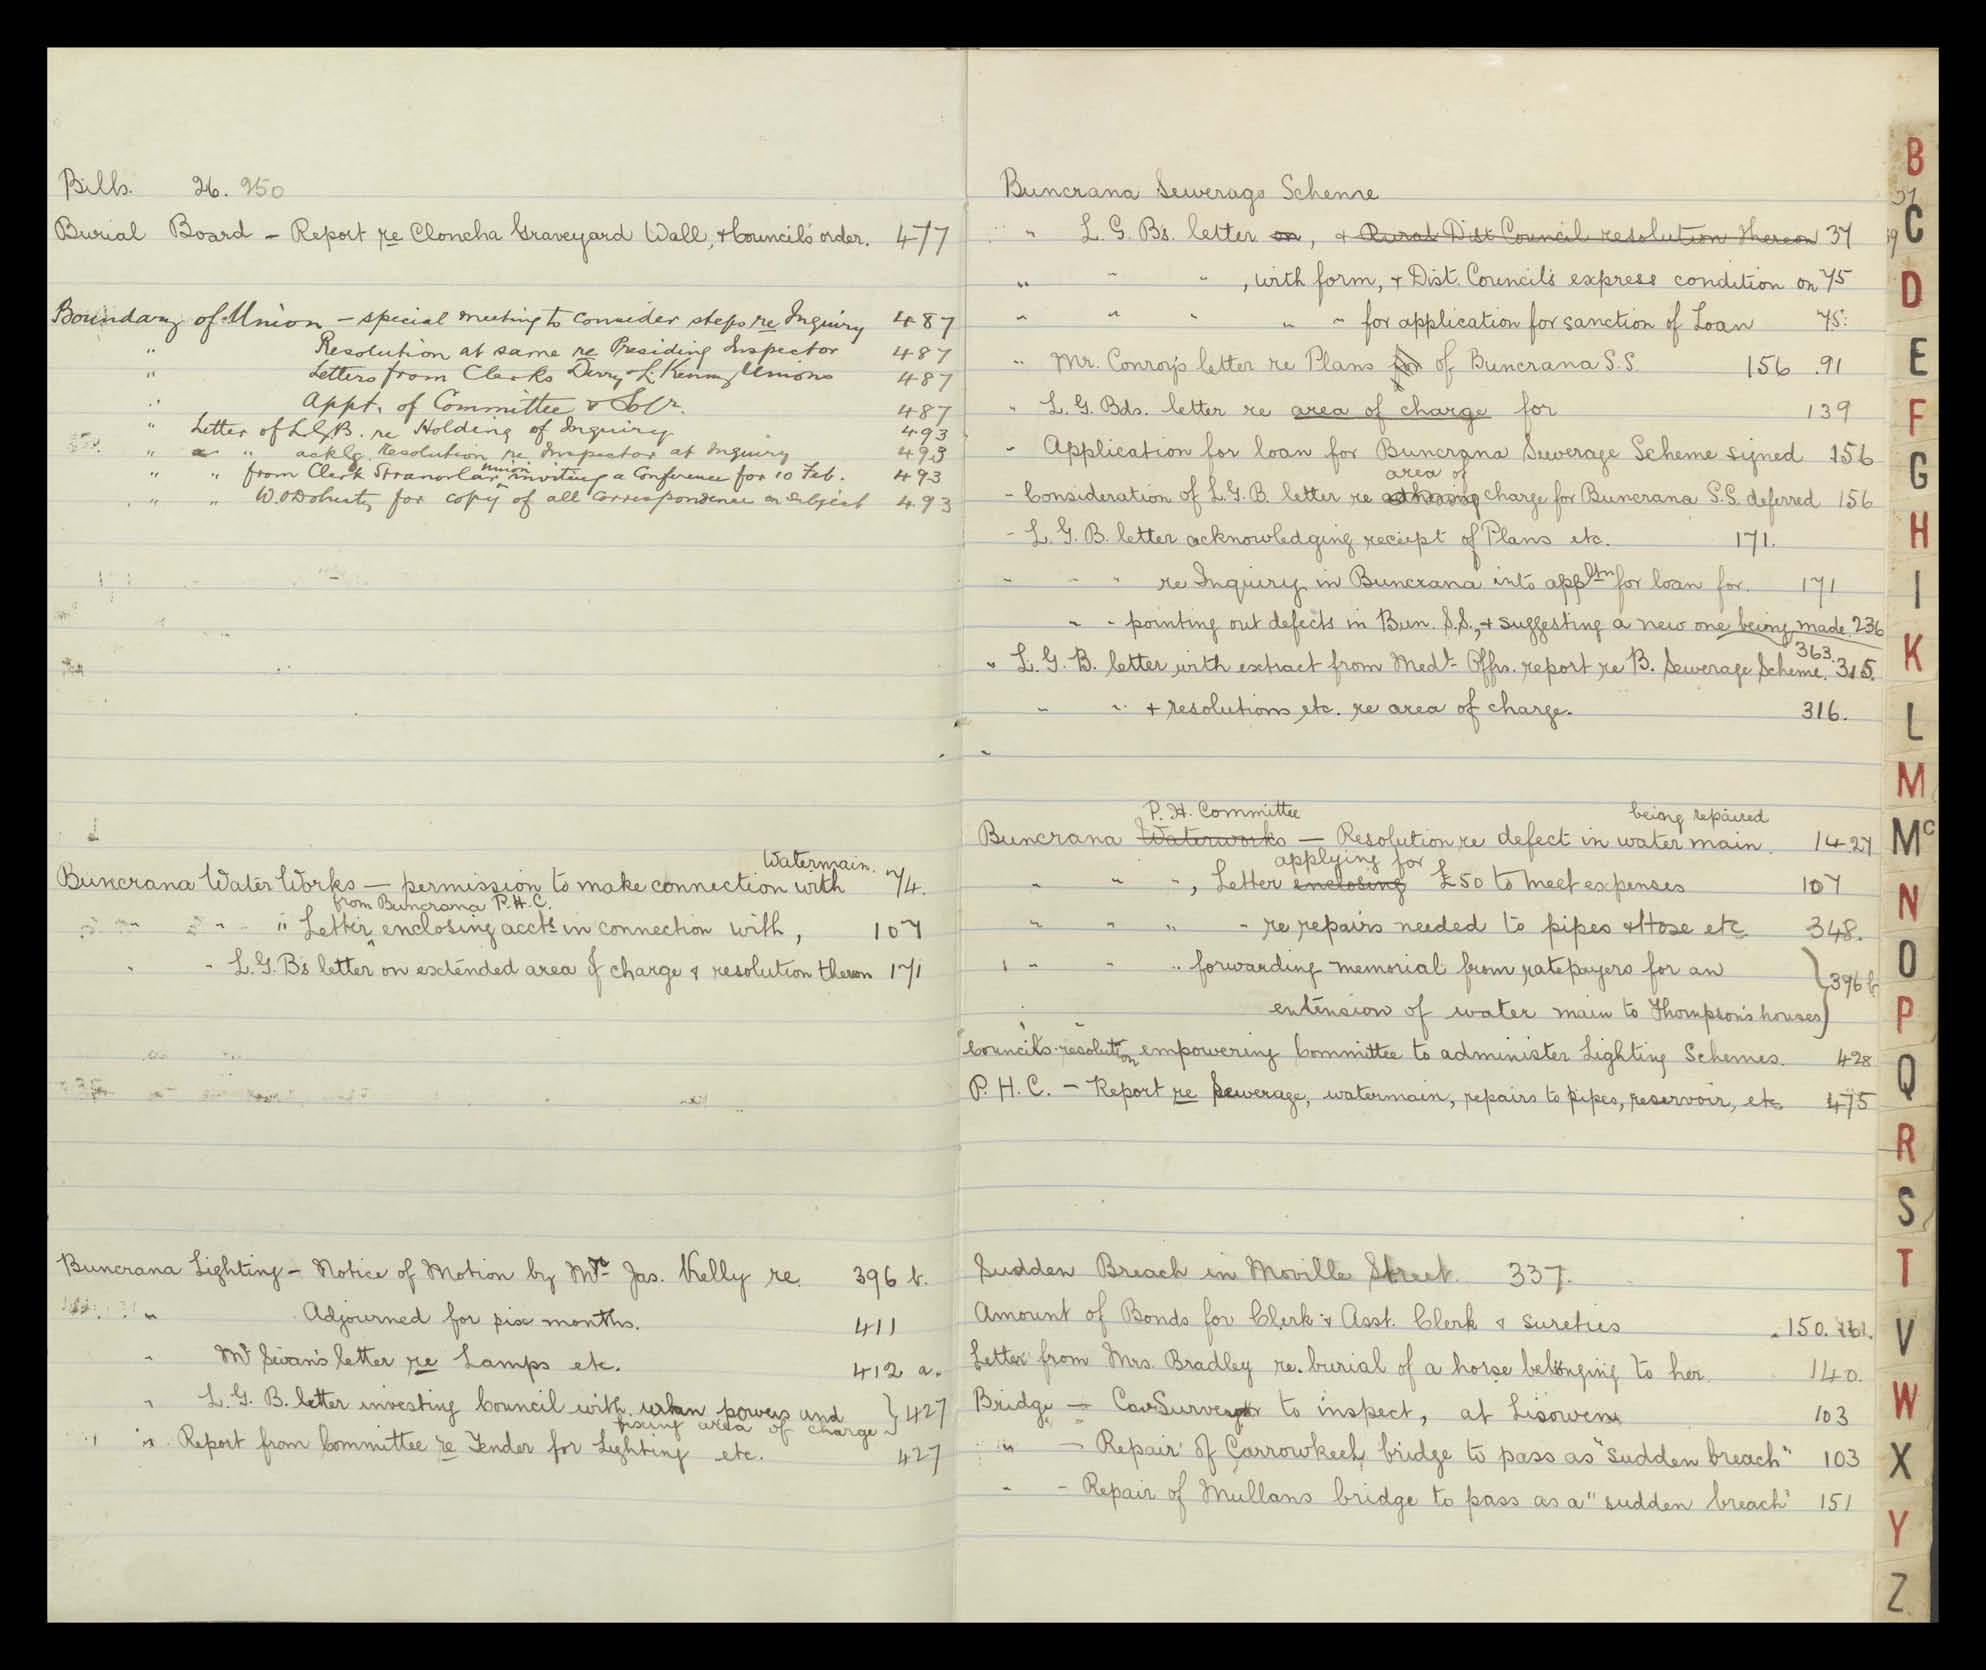 Bills. 26. 250
Burial Board – Report re Cloncha Graveyard Wall, & Council's order. 477
Boundary of Union – special meeting to consider steps re Inquiry 487
" Resolution at same re Presiding Inspector 487
" Letters from Clerks Derry & L. Kenny Unions 487
" Appt. of Committee & Solr. 487
" Letter of L.G.B. re Holding of Inquiry 493
" " " acklg. Resolution re Inspector at Inquiry 493
" " from Clerk Stranorlar Union inviting a Conference for 10 Feb. 493
" " W. O'Doherty for copy of all Correspondence on subject 493
Buncrana Water Works — permission to make connection with Watermain. 74.
" " " Letter from Buncrana P.H.C. enclosing accts in connection with, 107
" " L.G.B's letter on extended area of charge & resolution thereon 171
Buncrana Lighting – Notice of Motion by Mr. Jas. Kelly re. 396 b.
" Adjourned for six months. 411
" Mr Swan's letter re Lamps etc. 412 a.
" L.G.B. letter investing Council with urban powers and fixing area of charge } 427
" Report from Committee re Tender for Lighting etc. 427
Buncrana Sewerage Scheme
" L.G.Bs. letter on, & Rural Dist Council resolution thereon 37
" " " , with form, & Dist. Council's express condition on 75
" " " " " for application for sanction of Loan 75.
" Mr. Conroy's letter re Plans for of Buncrana S.S. 156 .91
" L.G.Bds. letter re area of charge for 139
" Application for loan for Buncrana Sewerage Scheme signed 156
– Consideration of L.G.B. letter re area of charge for Buncrana S.S. deferred 156
– L.G.B. letter acknowledging receipt of Plans etc. 171.
" " " re Inquiry in Buncrana into appltn for loan for. 171
" " pointing out defects in Bun. S.S., & suggesting a new one being made. 236
363.
" L.G.B. letter with extract from Medl. Offrs. report re B. Sewerage Scheme. 315.
" " & resolutions etc. re area of charge. 316.
"
Buncrana Waterworks P.H. Committee — Resolution re defect in water main being repaired. 14-27
" " " , Letter enclosing applying for £50 to meet expenses 107
" " " " re repairs needed to pipes & Hose etc 348.
" " " " forwarding memorial from ratepayers for an
extension of water main to Thompson's houses } 396 b
" Council's resolution empowering Committee to administer Lighting Schemes. 428
P.H.C. – Report re Sewerage, watermain, repairs to pipes, reservoir, etc 475
Sudden Breach in Moville Street. 337.
Amount of Bonds for Clerk & Asst. Clerk & Sureties 150. 161.
Letter from Mrs. Bradley re. burial of a horse belonging to her. 140.
Bridge – Co. Surveyor to inspect, at Lisowen 103
" – Repair of Carrowkeel bridge to pass as "sudden breach" 103
" – Repair of Mullans bridge to pass as a "sudden breach" 151
B
C
D
E
F
G
H
I
K
L
M
Mc
N
O
P
Q
R
S
T
V
W
X
Y
Z